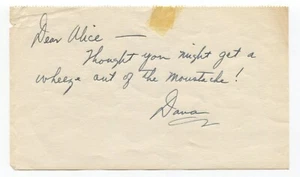 Dear Alice —
Thought you might get a
wheeze out of the moustache!
Dana